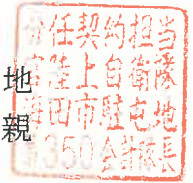 分任契約担当
官陸上自衛隊
海田市駐屯地
第350会計隊長
地
親